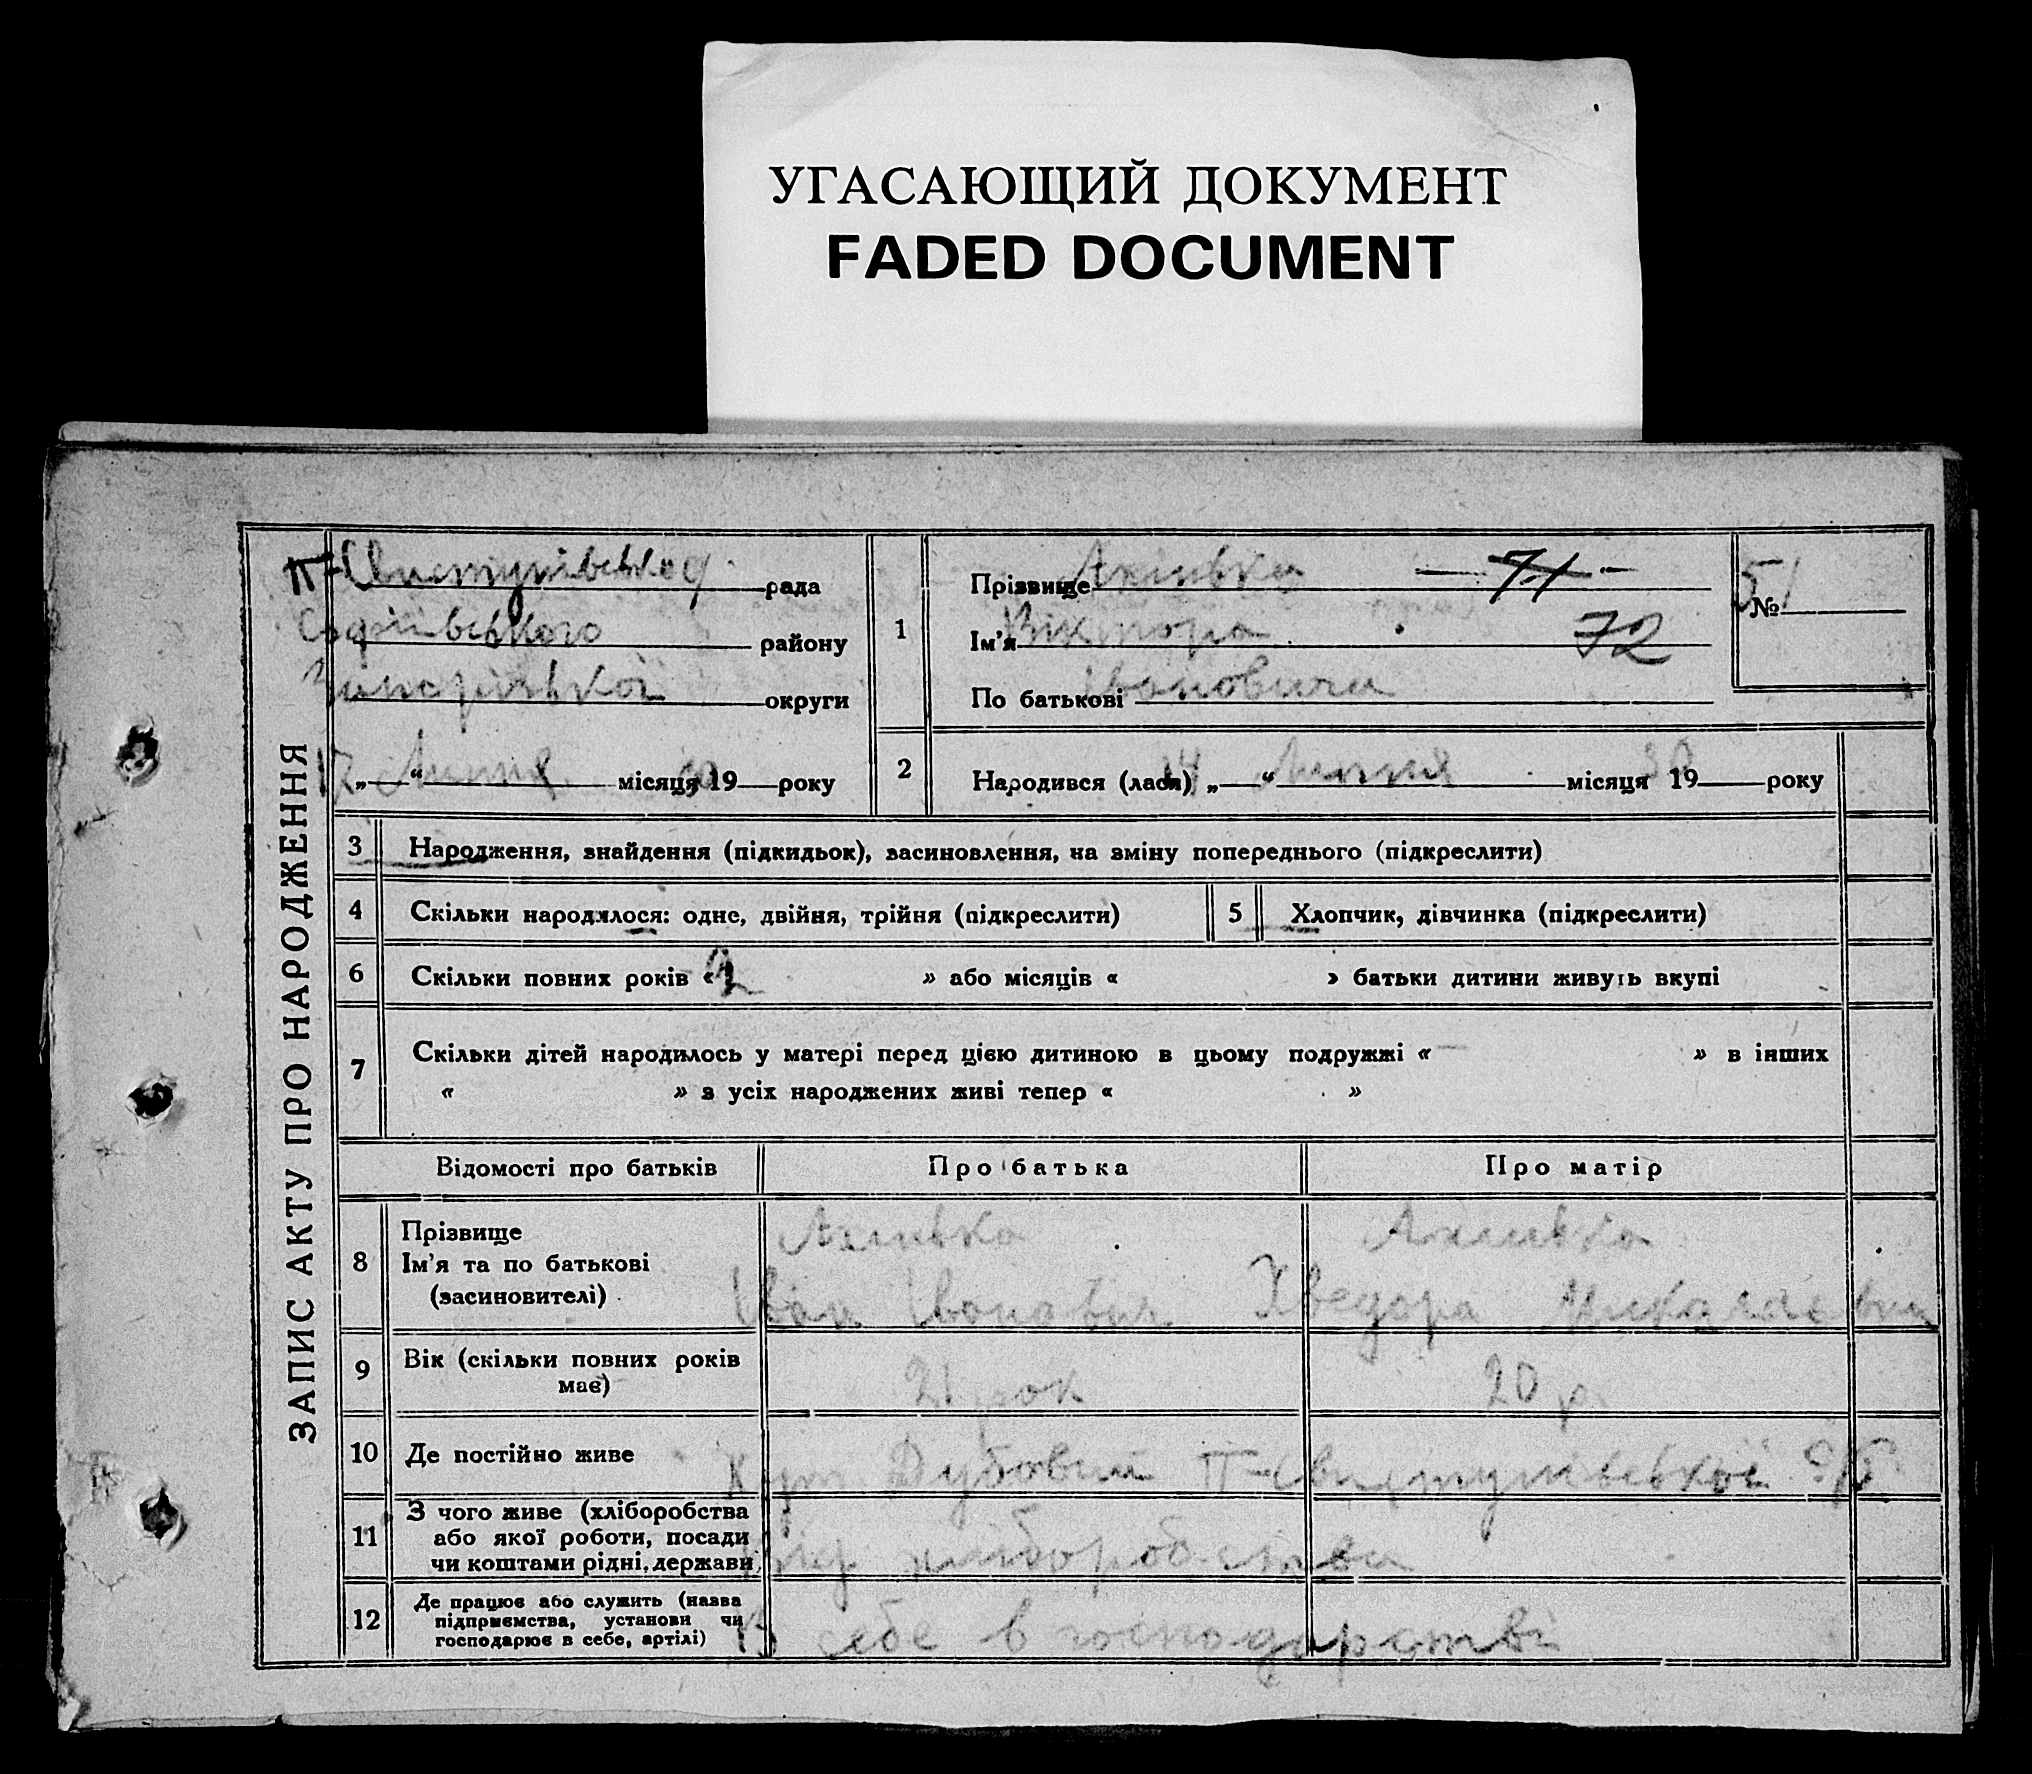 УГАСАЮЩИЙ ДОКУМЕНТ
FADED DOCUMENT
ЗАПИС АКТУ ПРО НАРОДЖЕННЯ
П-Свистунівськоя рада
Софіївського району
округи
17 Липня місяця 1930 року
1
Прізвище 71
Ім'я Віктора 72
По батькові Івановича
№ 51
2
Народився (лася) „14“ Липня місяця 1930 року
3 Народження, знайдення (підкидьок), засиновлення, на зміну попереднього (підкреслити)
4 Скільки народилося: одне, двійня, трійня (підкреслити)
5 Хлопчик, дівчинка (підкреслити)
6 Скільки повних років «2 » або місяців « » батьки дитини живуть вкупі
7 Скільки дітей народилось у матері перед цією дитиною в цьому подружжі «– » в інших
« » з усіх народжених живі тепер « »
Відомості про батьків Про батька Про матір
8 Прізвище
Ім'я та по батькові
(засиновителі)
Іван Іванович Хведора Миколаєвна
9 Вік (скільки повних років
має)
21 рок 20 р.
10 Де постійно живе Хут. Дубовий П-Свистунівської с/р
11 З чого живе (хліборобства
або якої роботи, посади
чи коштами рідні, держави)
від хліборобства
12 Де працює або служить (назва
підприємства, установи чи
господарює в себе, артілі)
В себе в господарстві